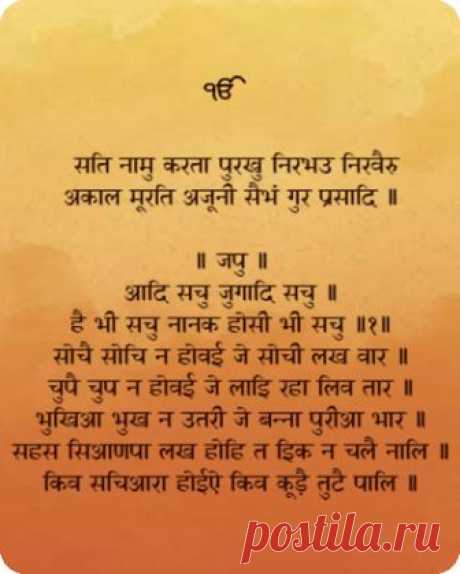 ੴ
सति नामु करता पुरखु निरभउ निरवैरु
अकाल मूरति अजूनी सैभं गुर प्रसादि ॥
॥ जपु ॥
आदि सचु जुगादि सचु ॥
है भी सचु नानक होसी भी सचु ॥१॥
सोचै सोचि न होवई जे सोची लख वार ॥
चुपै चुप न होवई जे लाइ रहा लिव तार ॥
भुखिआ भुख न उतरी जे बन्ना पुरीआ भार ॥
सहस सिआणपा लख होहि त इिक न चलै नालि ॥
किव सचिआरा होईऐ किव कूड़ै तुटै पालि ॥
postila.ru